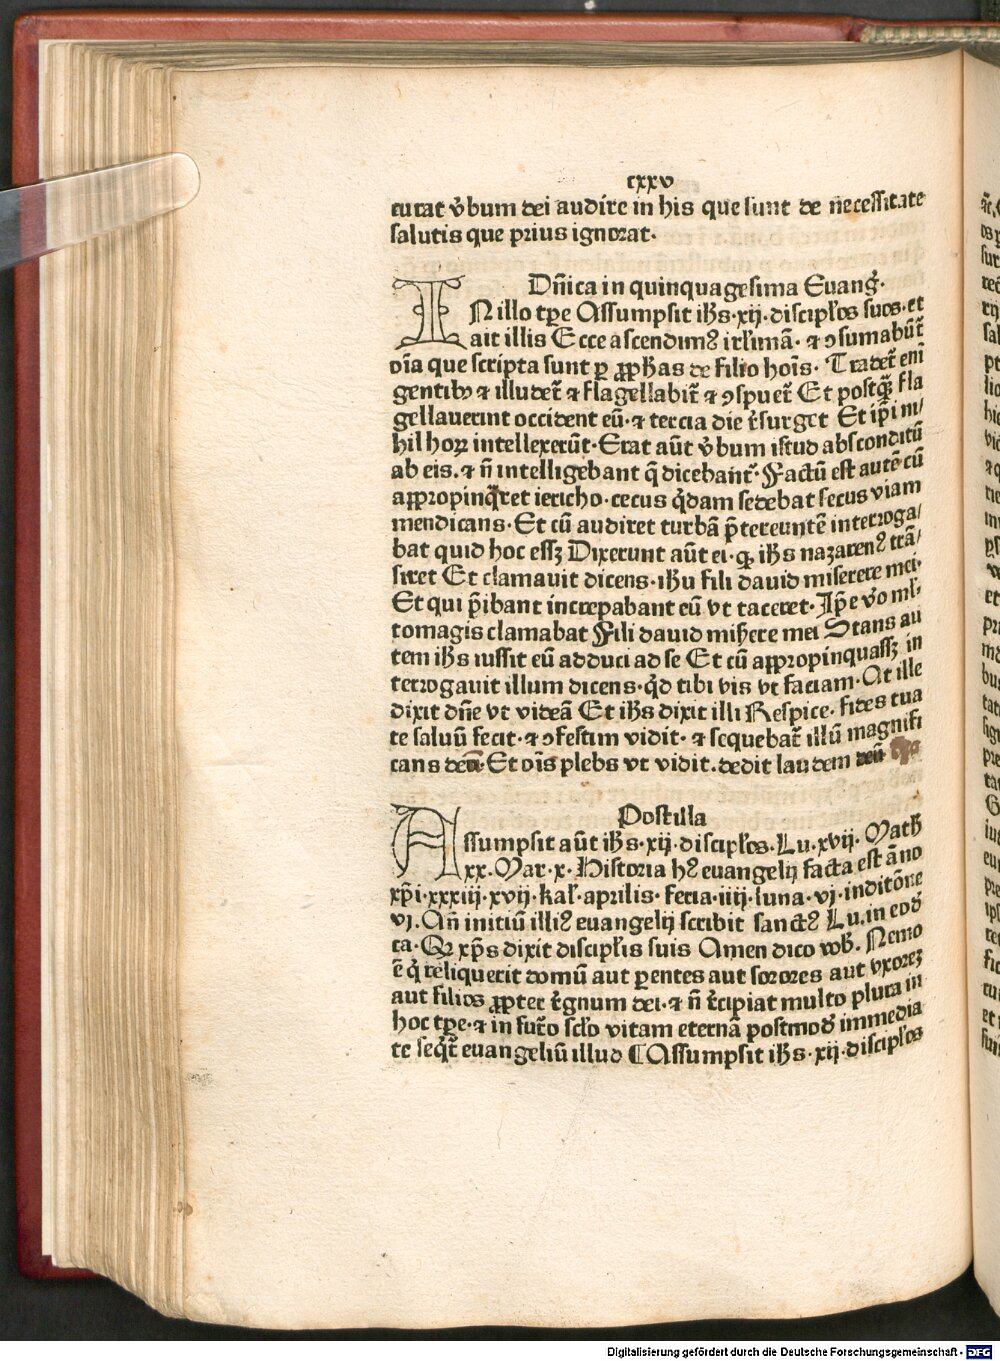 cxxv
curat v̄bum dei audire in his que sunt de necessitate
salutis que prius ignorat.
Dn̄ica in quinquagesima Euanḡ.
IN illo tp̄e Assumpsit ih̄s.xij.discipl̄os suos.et
ait illis Ecce ascendimꝰ irl̄imā. ⁊ ꝯsumabūt̄
oīa que scripta sunt ꝑ ꝓph̄as de filio hoīs. Tradet̄ eī
gentibꝫ ⁊ illudet̄ ⁊ flagellabit̄ ⁊ ꝯspuet̄ Et postqꝫ̄ fla
gellauerint occident eū.⁊ tercia die r̄surget Et ip̄i ni/
hil hoꝝ intellexerūt.Erat aūt v̄bum istud absconditū
ab eis.⁊ n̄ intelligebant q̄ dicebant̄.Factū est autē cū
appropinq̄ret iericho.cecus q̄dam sedebat secus viam
mendicans.Et cū audiret turbā p̄tereuntē interroga/
bat quid hoc essꝫ Dixerunt aūt ei.ꝙ ih̄s nazarenꝰ trā/
siret Et clamauit dicens.ih̄u fili dauid miserere mei.
Et qui p̄ibant increpabant eū vt taceret.Ip̄e v̄o ml̄/
tomagis clamabat Fili dauid mis̄ere mei Stans au
tem ih̄s iussit eū adduci ad se Et cū appropinquassꝫ in
terrogauit illum dicens.qd̄ tibi vis vt faciam.At ille
dixit dn̄e vt videā Et ih̄s dixit illi Respice. fides tua
te saluū fecit.⁊ ꝯfestim vidit.⁊ sequebat̄ illū magnifi
cans deū.Et oīs plebs vt vidit.dedit laudem deū
Postilla
Assumpsit aūt ih̄s.xij.discipl̄os.Lu.xvij. Math̄
xx.Mar.x.Historia hꝰ euangelij facta est āno
xp̄i.xxxiij.xvij.kal̄.aprilis.feria.iiij.luna.vj.inditōne
vj.An̄ initiū illiꝰ euangelij scribit sanctꝰ Lu.in eod̄
ca.Qꝛ xp̄s dixit discipl̄is suis Amen dico vob̄. Nemo
ē q̄ reliquerit domū aut ꝑentes aut sorores aut vxoreꝫ
aut filios ꝓpter r̄gnum dei.⁊ n̄ r̄cipiat multo plura in
hoc tp̄e.⁊ in fut̄o scl̄o vitam eternā postmod̄ immedia
te seqt̄ euangeliū illud ⸿Assumpsit ih̄s.xij.discipl̄os
Digitalisierung gefördert durch die Deutsche Forschungsgemeinschaft - DFG